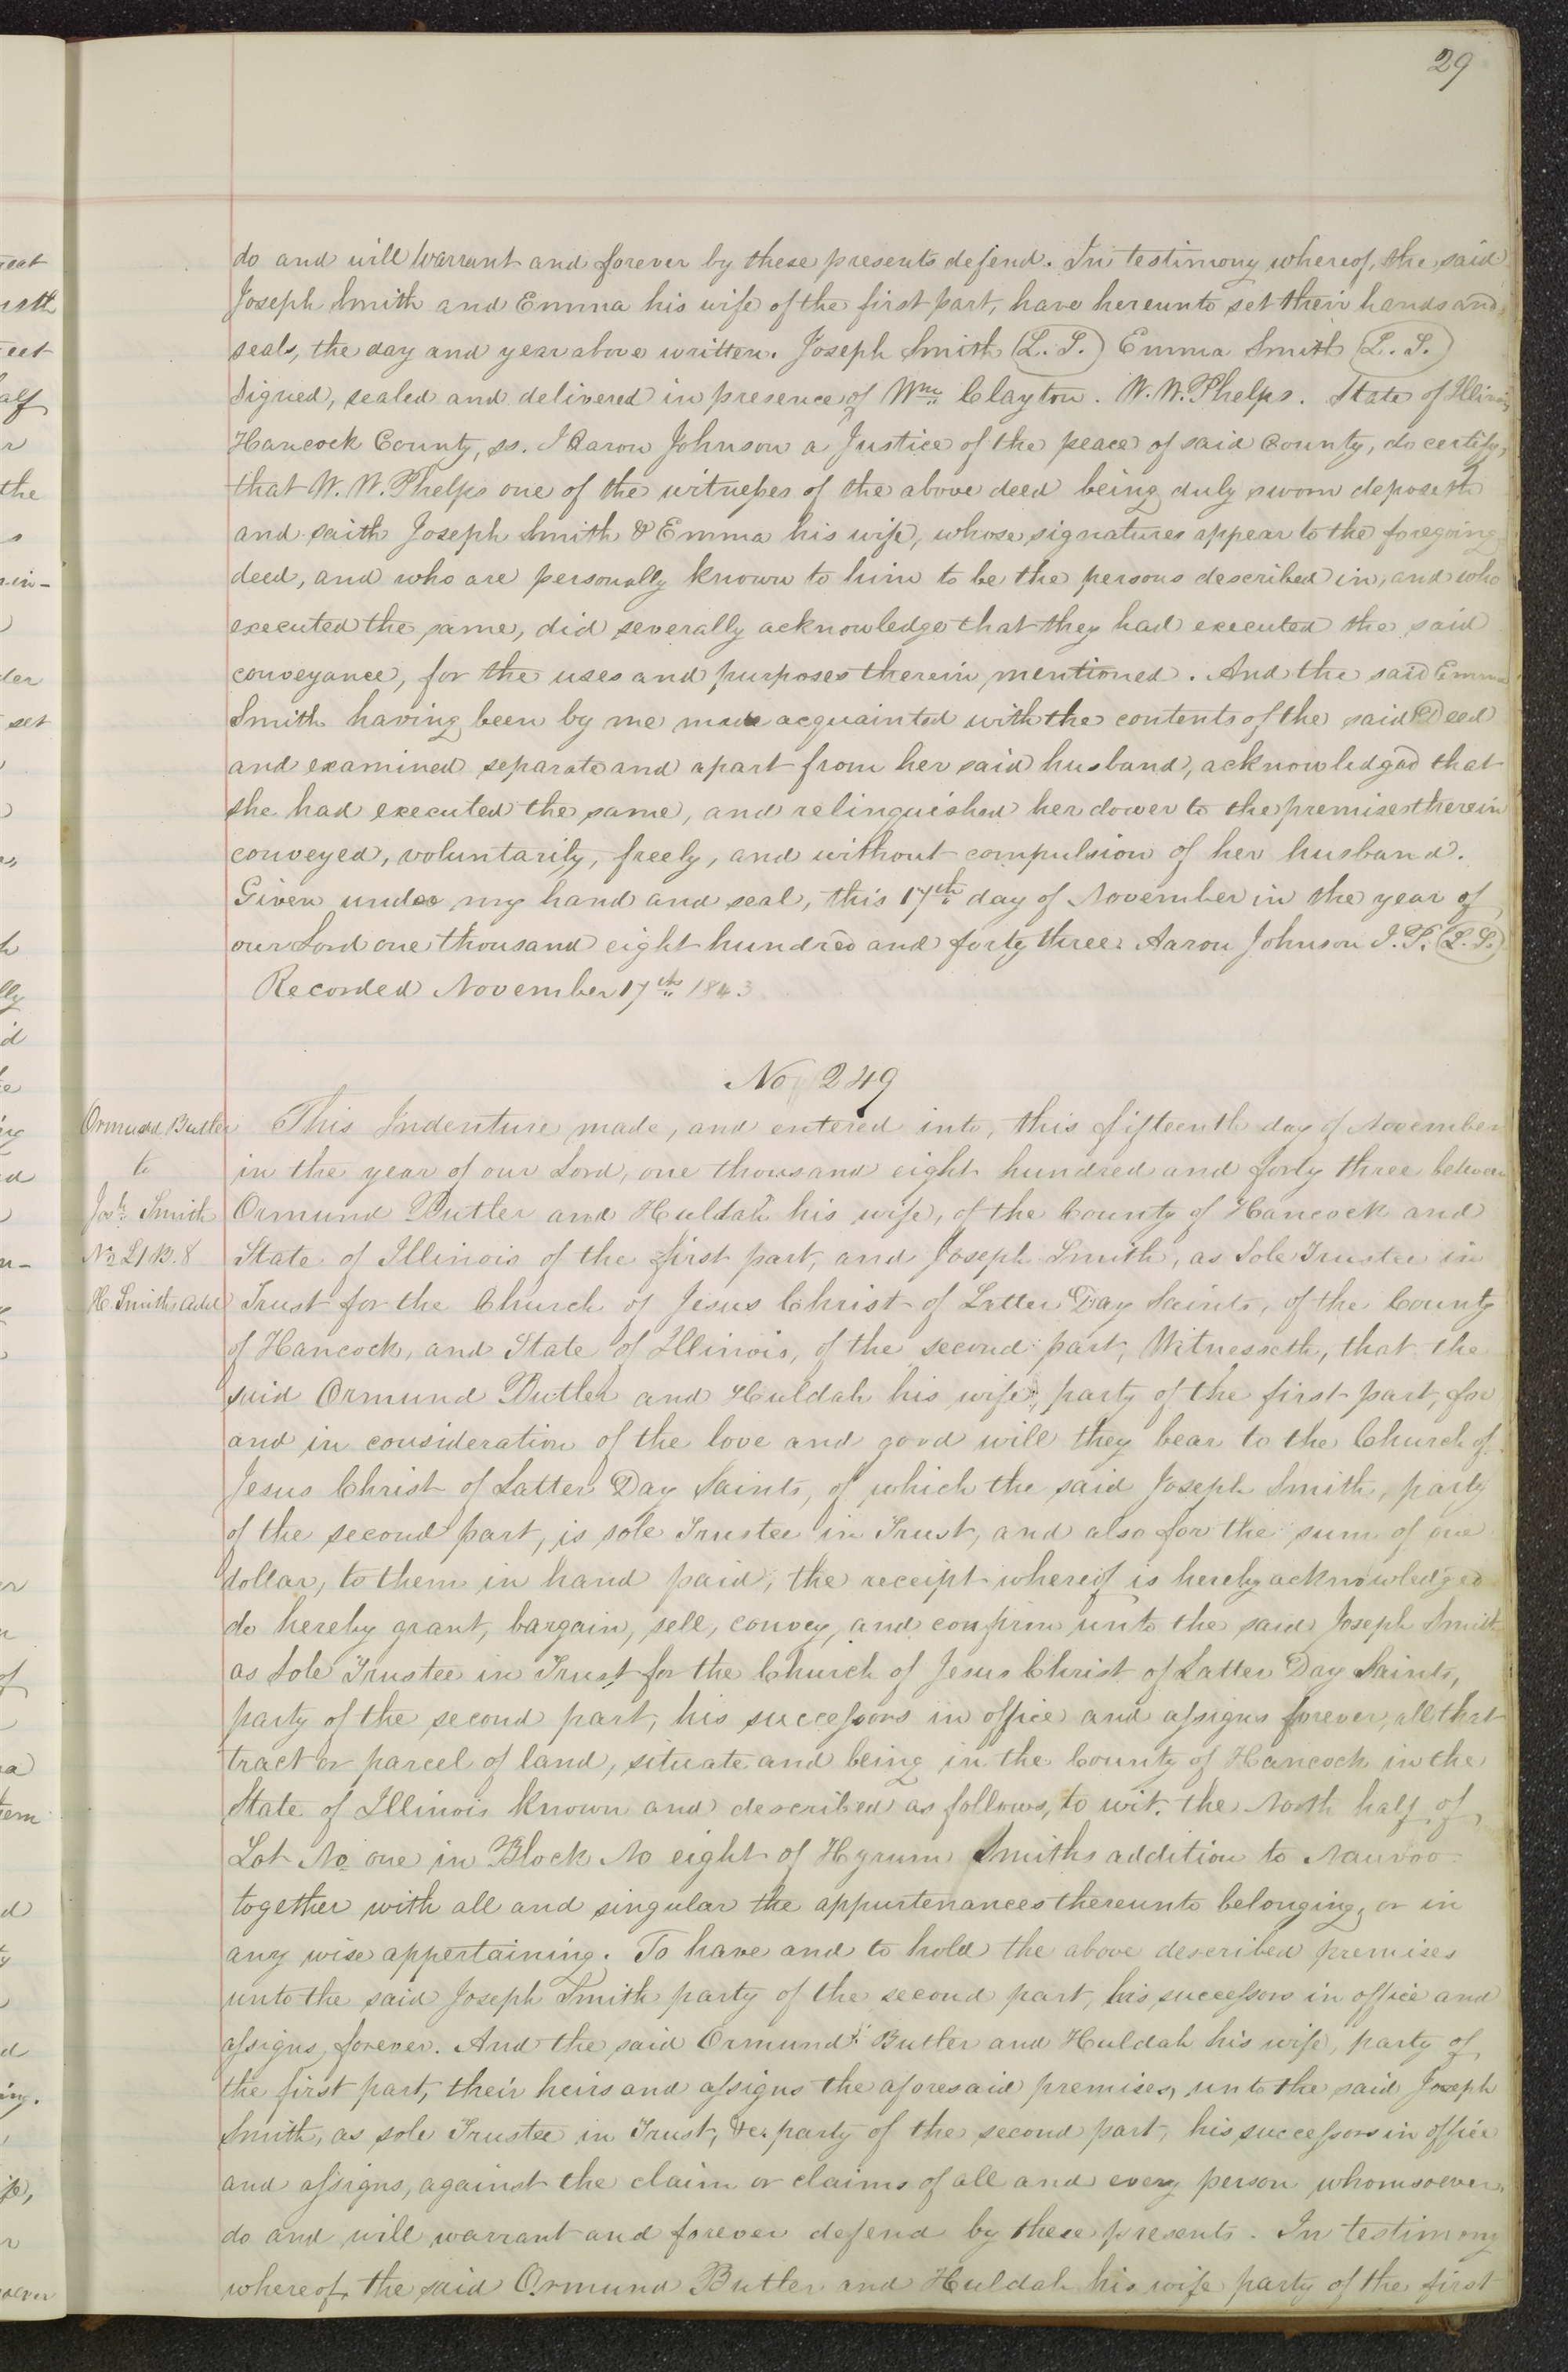 29
do and will warrant and forever by these presents defend. In testimony whereof, the said
Joseph Smith and Emma his wife of the first part, have hereunto set their hands and
seals, the day and year above written. Joseph Smith (L. S.) Emma Smith (L. S.)
Signed, sealed and delivered in presence of Wm. Clayton. W. W. Phelps. State of Illinois
Hancock County, ss. I Aaron Johnson a Justice of the peace of said County, do certify,
that W. W. Phelps one of the witnesses of the above deed being duly sworn deposeth
and saith Joseph Smith & Emma his wife, whose signatures appear to the foregoing
deed, and who are personally known to him to be the persons described in, and who
executed the same, did severally acknowledge that they had executed the said
conveyance, for the uses and purposes therein mentioned. And the said Emma
Smith having been by me made acquainted with the contents of the said Deed
and examined separate and apart from her said husband, acknowledged that
she had executed the same, and relinquished her dower to the premises therein
conveyed, voluntarily, freely, and without compulsion of her husband.
Given under my hand and seal, this 17th day of November in the year of
our Lord one thousand eight hundred and forty three. Aaron Johnson J. P. (L. S.)
Recorded November 17th 1843
No 249
Ormund Butler
to
Jos.h Smith
N½ L1 B. 8
H. Smiths add
This Indenture made, and entered into, this fifteenth day of November
in the year of our Lord, one thousand eight hundred and forty three between
Ormund Butler and Huldah his wife, of the County of Hancock and
State of Illinois of the first part, and Joseph Smith, as Sole Trustee in
Trust for the Church of Jesus Christ of Latter Day Saints, of the County
of Hancock, and State of Illinois, of the second part, Witnesseth, that the
said Ormund Butler and Huldah his wife, party of the first part, for
and in consideration of the love and good will they bear to the Church of
Jesus Christ of Latter Day Saints, of which the said Joseph Smith, party
of the second part, is sole Trustee in Trust, and also for the sum of one
dollar, to them in hand paid, the receipt whereof is hereby acknowledged
do hereby grant, bargain, sell, convey, and confirm unto the said Joseph Smith
as Sole Trustee in Trust for the Church of Jesus Christ of Latter Day Saints,
party of the second part, his successors in office and assigns forever, all that
tract or parcel of land, situate and being in the County of Hancock in the
State of Illinois known and described as follows, to wit. the North half of
Lot No one in Block No eight of Hyrum Smiths addition to Nauvoo
together with all and singular the appurtenances thereunto belonging, or in
any wise appertaining. To have and to hold the above described premises
unto the said Joseph Smith party of the second part, his successors in office and
assigns, forever. And the said Ormund Butler and Huldah his wife, party of
the first part, their heirs and assigns the aforesaid premises, unto the said Joseph
Smith, as sole Trustee in Trust, &c. party of the second part, his successors in office
and assigns, against the claim or claims of all and every person whomsoever,
do and will warrant and forever defend by these presents. In testimony
whereof, the said Ormund Butler and Huldah his wife party of the first